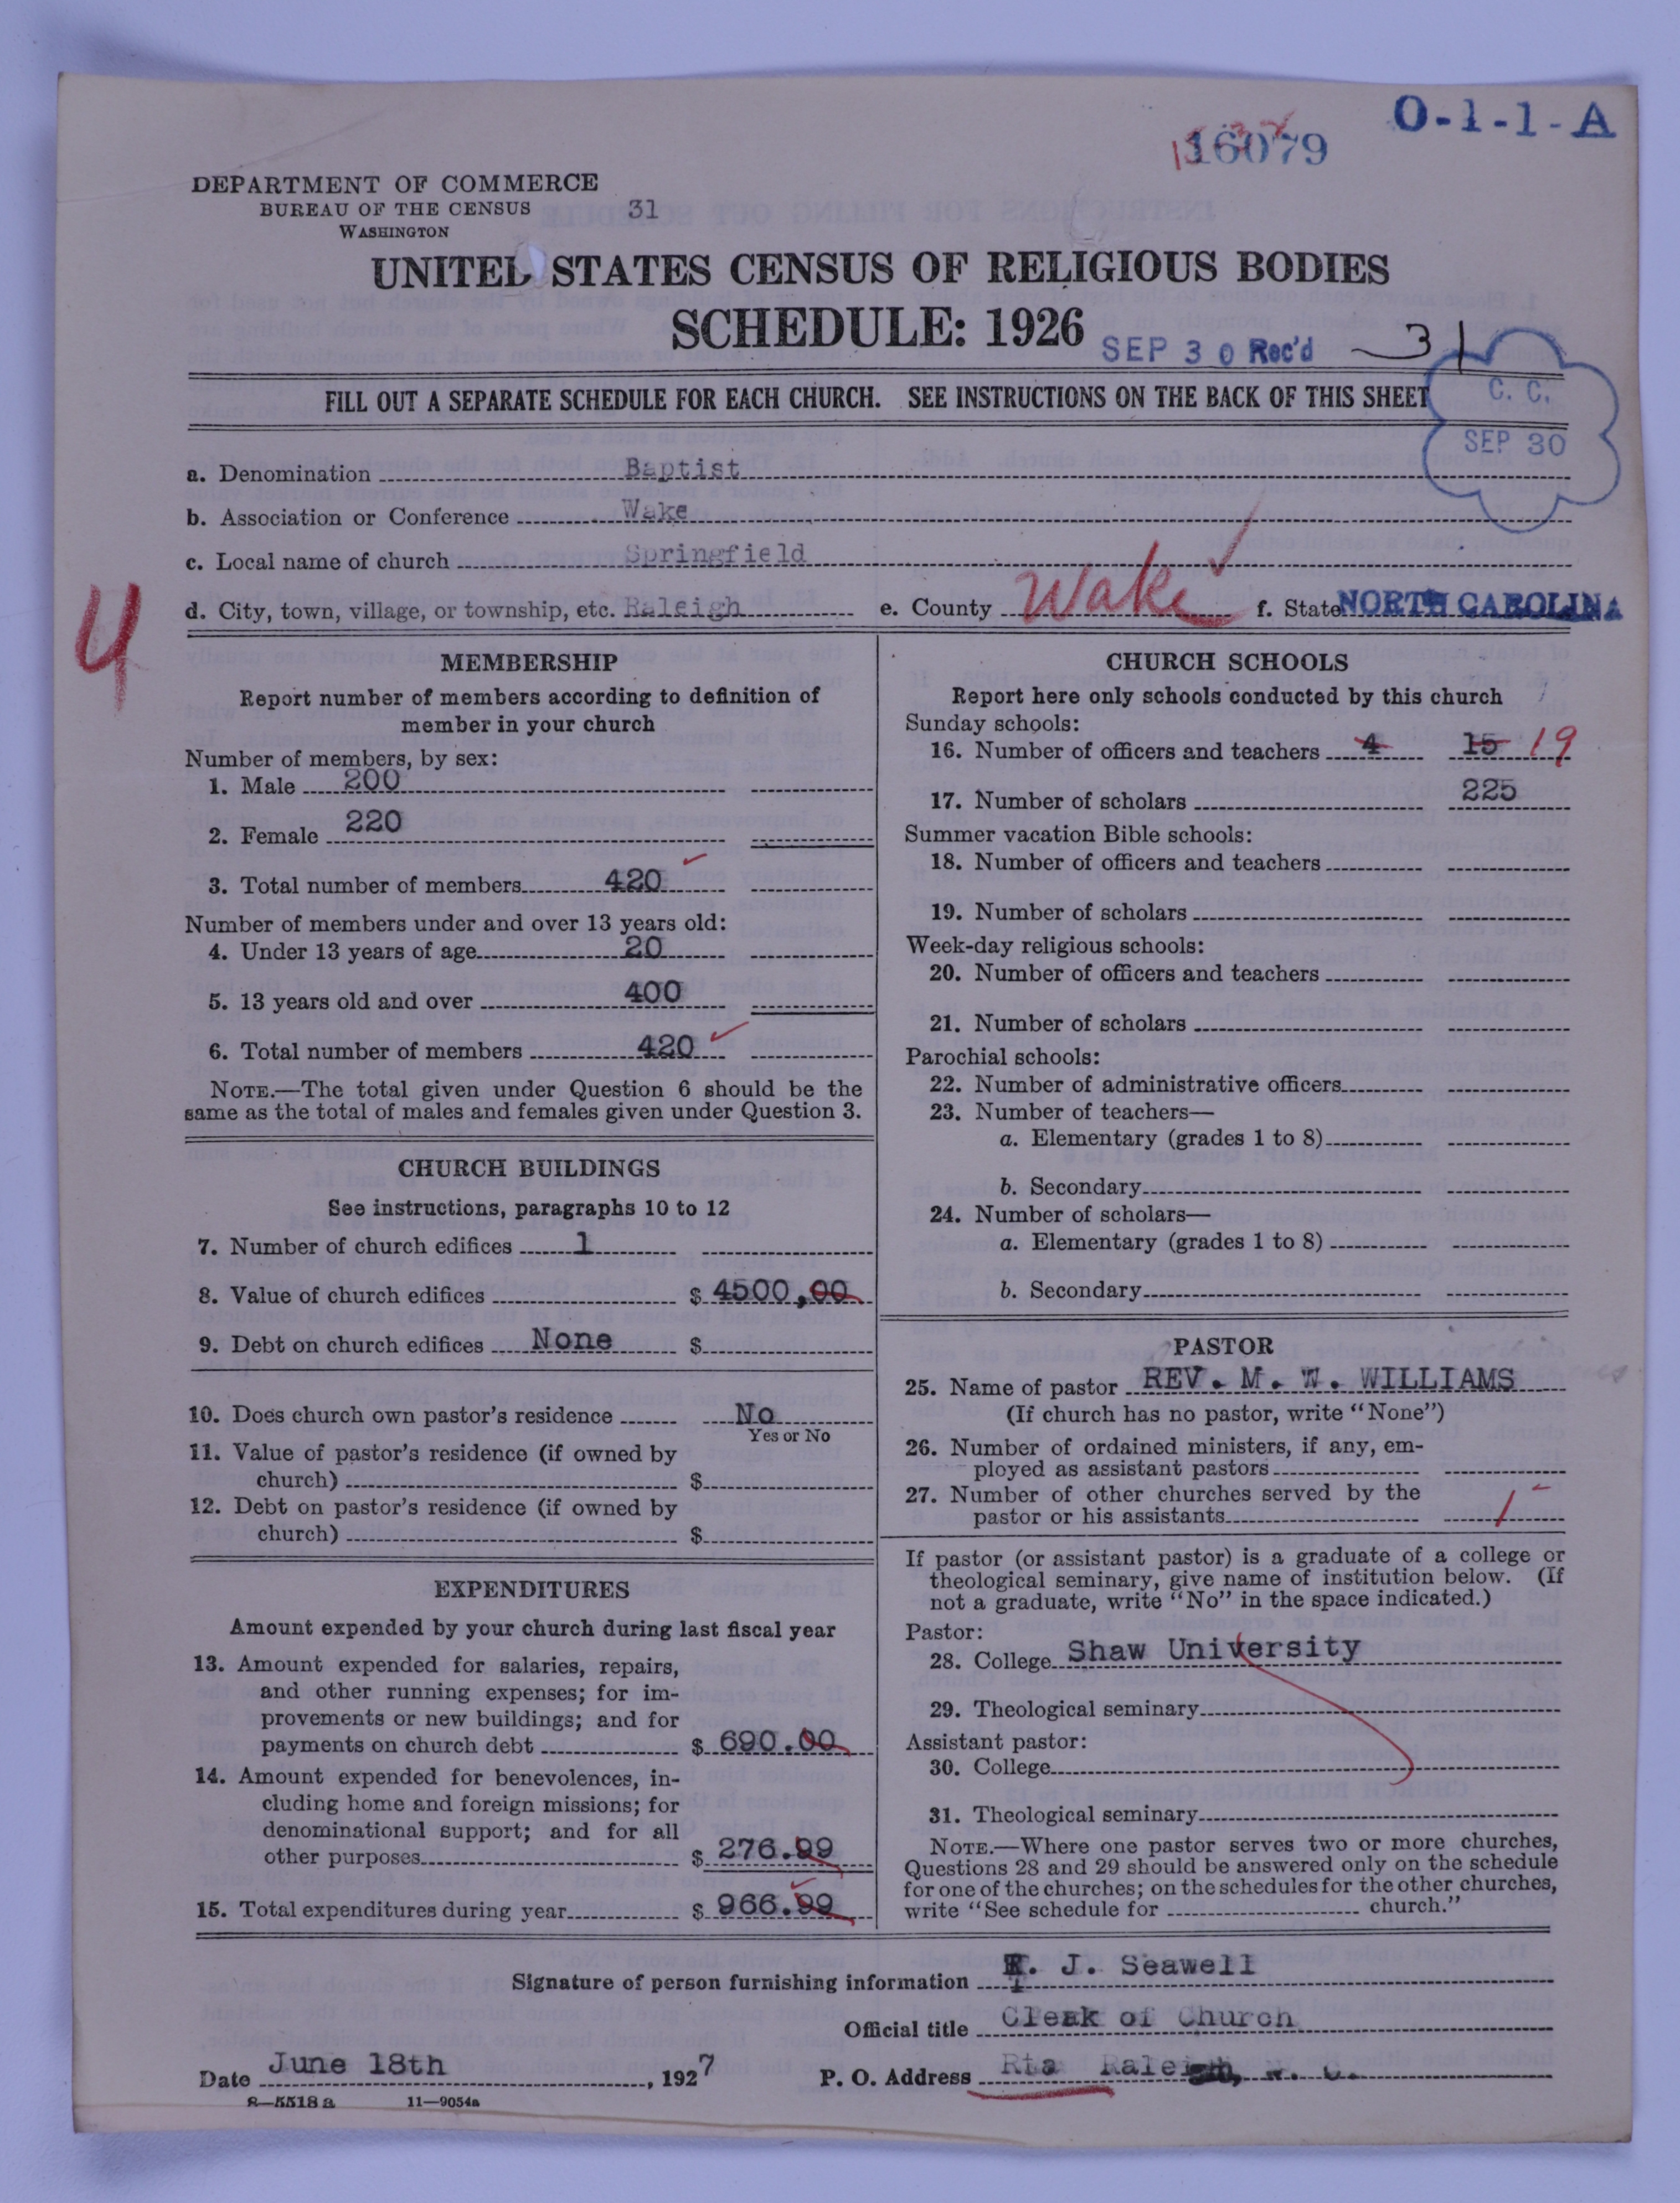 O-1-1-A
16079
DEPARTMENT OF COMMERCE
BUREAU OF THE CENSUS 31
WASHINGTON
UNITED STATES CENSUS OF RELIGIOUS BODIES
SCHEDULE: 1926
SEP 30 Rec'd 31
FILL OUT A SEPARATE SCHEDULE FOR EACH CHURCH. SEE INSTRUCTIONS ON THE BACK OF THIS SHEET
C. C.
SEP 30
a. Denomination Baptist
b. Association or Conference Wake
c. Local name of church Springfield
d. City, town, village, or township, etc. Raleigh e. County Wake f. State NORTH CAROLINA
4
MEMBERSHIP
Report number of members according to definition of
member in your church
Number of members, by sex:
1. Male 200
2. Female 220
3. Total number of members 420
Number of members under and over 13 years old:
4. Under 13 years of age 20
5. 13 years old and over 400
6. Total number of members 420
NOTE.—The total given under Question 6 should be the
same as the total of males and females given under Question 3.
CHURCH BUILDINGS
See instructions, paragraphs 10 to 12
7. Number of church edifices 1
8. Value of church edifices $ 4500,00
9. Debt on church edifices None $
10. Does church own pastor's residence No
Yes or No
11. Value of pastor's residence (if owned by
church) $
12. Debt on pastor's residence (if owned by
church) $
EXPENDITURES
Amount expended by your church during last fiscal year
13. Amount expended for salaries, repairs,
and other running expenses; for im-
provements or new buildings; and for
payments on church debt $ 690.00
14. Amount expended for benevolences, in-
cluding home and foreign missions; for
denominational support; and for all
other purposes $ 276.99
15. Total expenditures during year $ 966.99
CHURCH SCHOOLS
Report here only schools conducted by this church
Sunday schools:
16. Number of officers and teachers 4 15 19
17. Number of scholars 225
Summer vacation Bible schools:
18. Number of officers and teachers
19. Number of scholars
Week-day religious schools:
20. Number of officers and teachers
21. Number of scholars
Parochial schools:
22. Number of administrative officers
23. Number of teachers—
a. Elementary (grades 1 to 8)
b. Secondary
24. Number of scholars—
a. Elementary (grades 1 to 8)
b. Secondary
PASTOR
25. Name of pastor REV. M. W. WILLIAMS
(If church has no pastor, write "None")
26. Number of ordained ministers, if any, em-
ployed as assistant pastors
27. Number of other churches served by the
pastor or his assistants 1
If pastor (or assistant pastor) is a graduate of a college or
theological seminary, give name of institution below. (If
not a graduate, write "No" in the space indicated.)
Pastor:
28. College Shaw University
29. Theological seminary
Assistant pastor:
30. College
31. Theological seminary
NOTE.—Where one pastor serves two or more churches,
Questions 28 and 29 should be answered only on the schedule
for one of the churches; on the schedules for the other churches,
write "See schedule for church."
Signature of person furnishing information J. Seawell
Official title Cleak of Church
Date June 18th, 1927 P. O. Address Rta Raleigh, N. C.
8—5518a 11—9054a